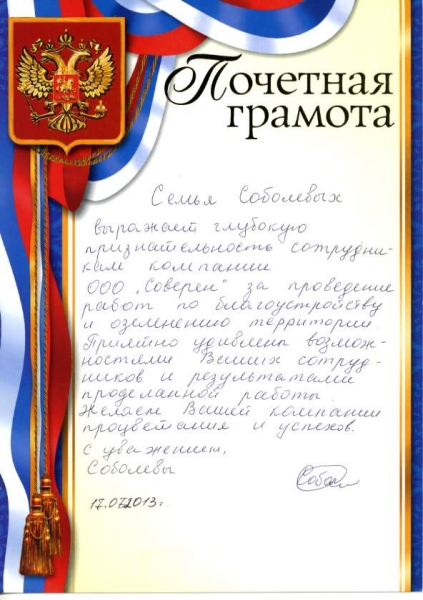 Почетная
грамота
Семья Соболевых
выражает глубокую
признательность сотрудни-
кам компании
ООО „Соверен" за проведение
работ по благоустройству
и озеленению территории.
Приятно удивлены возмож-
ностями Ваших сотруд-
ников и результатами
проделанной работы.
Желаем Вашей компании
процветания и успехов.
С уважением,
Соболевы
17.07.2013г.